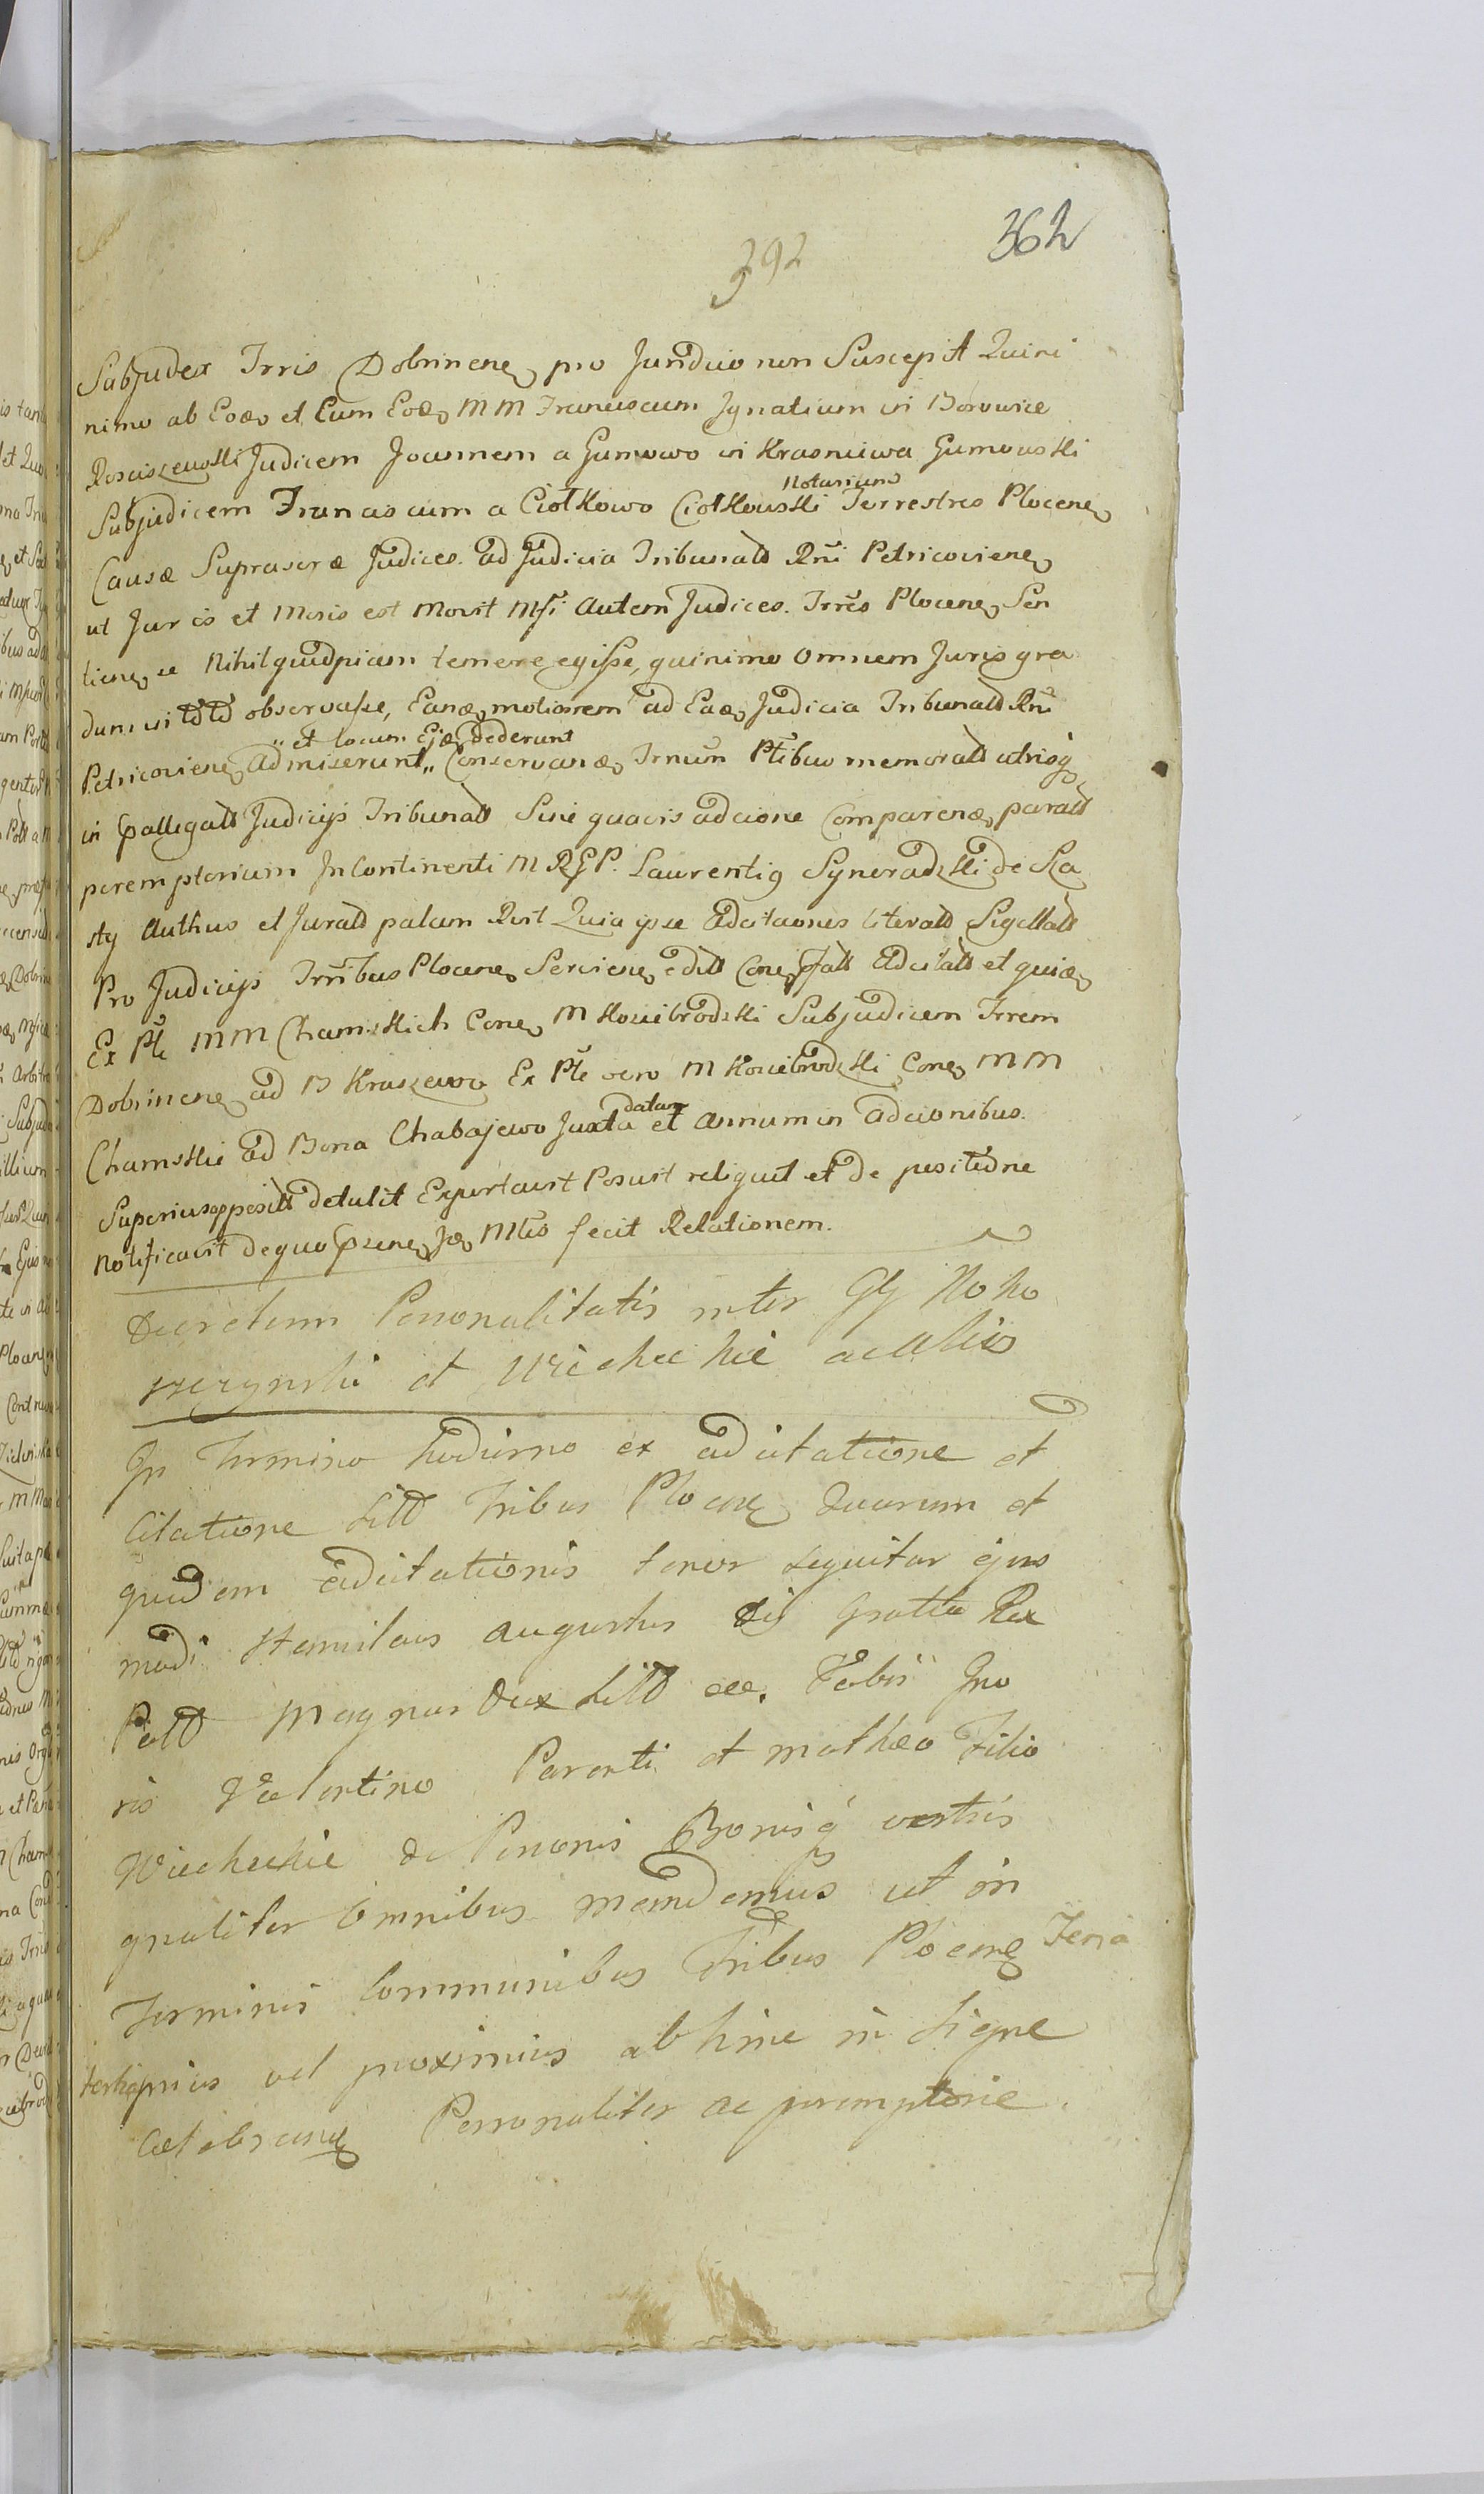 362
392
Subjudex Trris Dobrinenę pro Juridico non Suscepit Quini
nimo ab Eodę et Eum Eodę MM Franciscum Ignatium in Borowice
Rosciszewski Judicem Joannem a Gumowo in Krasniewa Gumowski
Subjudicem Franciscum a Ciołkowo Ciołkowski Notarium Terrestres Plocenę
Causæ Suprascræ Judices ad Judicia Tribunald Rni Petricovienę
ut Juris et Moris est Movit Msi autem Judices Trres Plocenę Sen
tienę se Nihil quidpiam temere egisse, quinimo omnem Juris gra
dum in observasse, Eandę motionem ad Eadę Judicia Tribunald Rni
Petricovienę admiserunt „ et locum Ejdę dederunt „ Conservandę Trnum Ptibus memorald utrisq
in Judicijs Tribunald Sine quavis adcione Comparendę parald
peremptorium In Continenti M RGP. Laurentig Syneradzki de
sty Authus et Jurald palam Rcst Quia ipse Adcitaones literald Sigillald
Pro Judicijs Trribus Plocenę Servienę edill Conę Adcitald et quidę
Ex Pte MM Chamskich Conę M Kosiebrodzki Subjudicem Trrem
Dobrinenę ad B Kraszewo Ex Pte vero M Kosiebrodzki Conę MM
Chamskie ad Bona Chabajewo Juxta datam et annum in adcionibus
Superius appositd detulit Exportavit Posuit reliquit et de positione
notificavit de quo Mtis fecit Relationem.
Decretum Personalitatis inter GG Moko
rzyński et Wiecheckie ac alios
In Termino hodierno ex adcitatione et
Citatione Litt Tribus Plocenę Quarum et
quidem adcitationis tenor sequitur ejus
modi Stanislaus Augustus Dei Gratia Rex
Poll Magnus Dux Litt etc. Vobis Gno
ris Valentino Parenti et Mathæo Filio
Wiecheckie de Personis Bonisq vestris
gnaliter omnibus mandamus ut in
Terminis Communibus Tribus Plocenę Feria
tertia prius vel proximius abhinc in
Celebrandę Personaliter ac peremptorie.